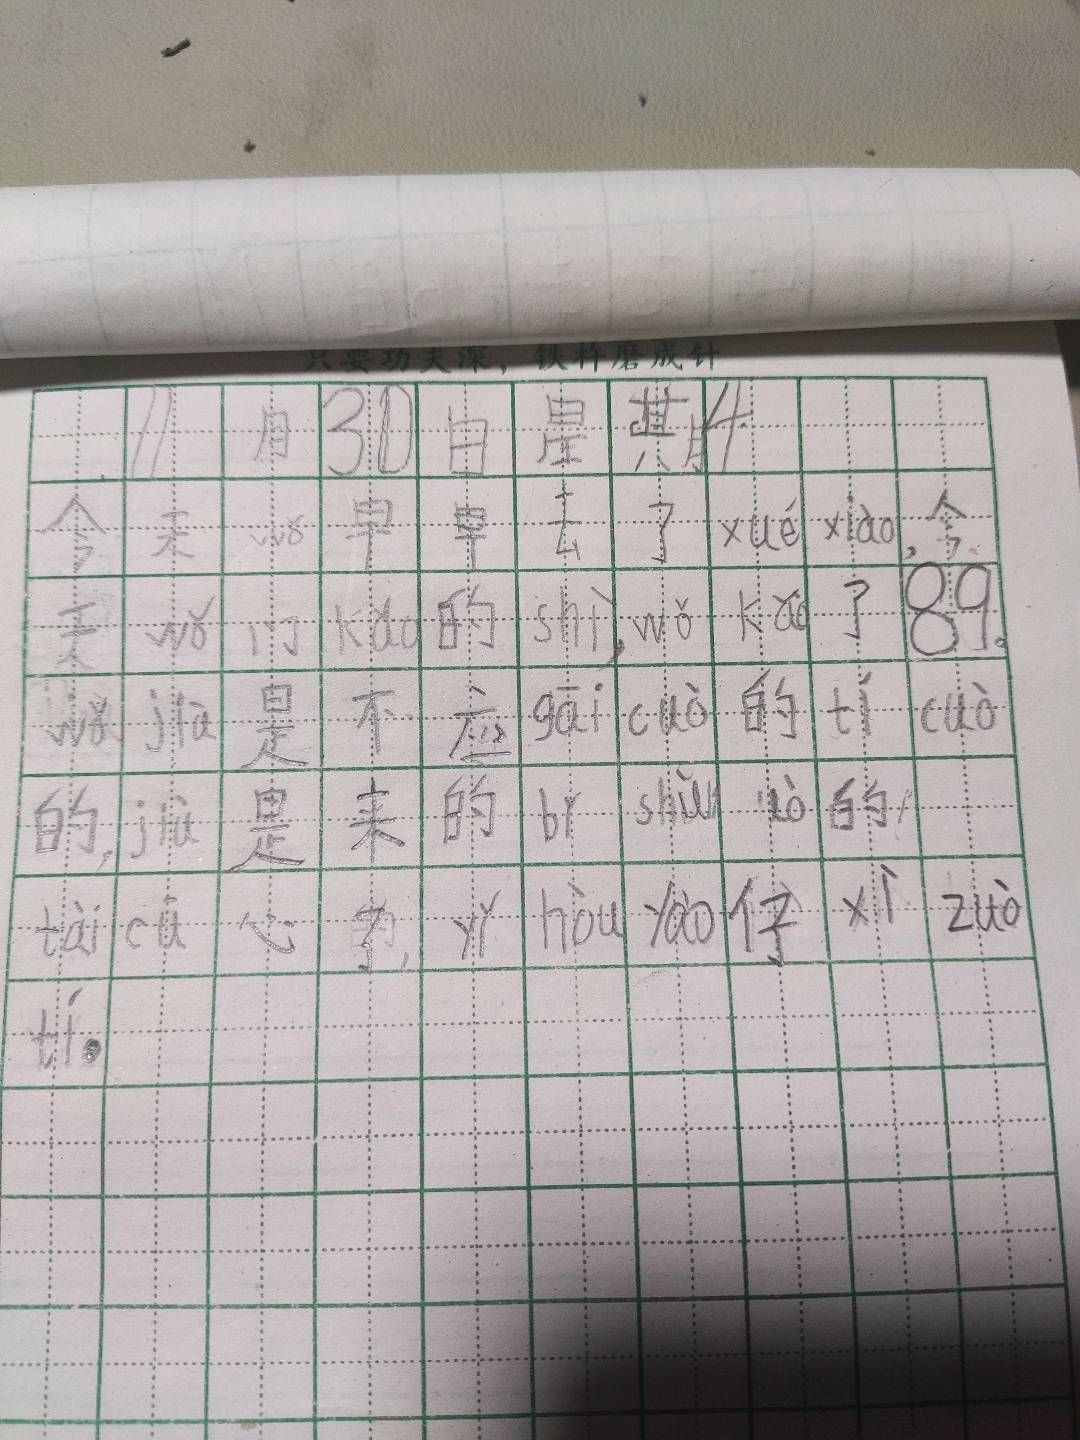 只要功夫深，铁杵磨成针
11月30日星期4
今天wǒ早早去了xué xiào,今
天wǒ门kǎo的shì,wǒ kǎo了89。
wǒ jiù是不应gāi cuò的tí cuò
的,jiù是来的bǐ shùn的,
tài cū心了,yǐ hòu yào仔xì zuò
tí。